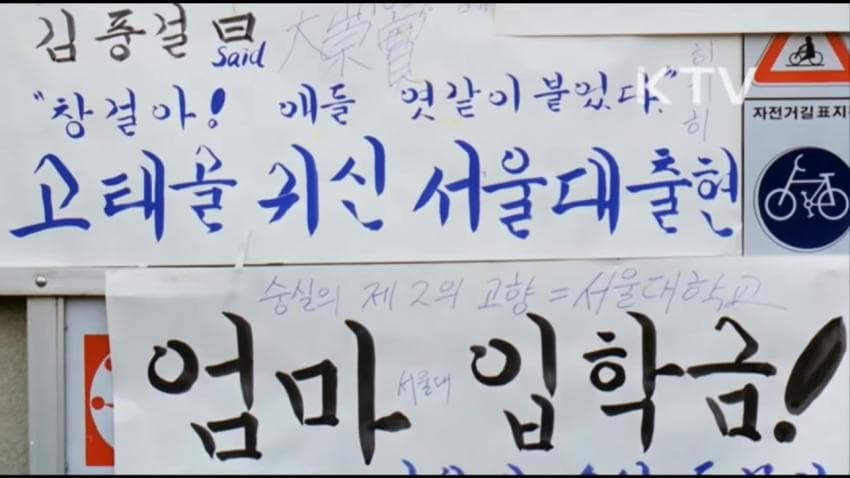 김종걸 曰
Said
大常賞
히히히
KTV
"창걸아! 애들 엿같이 붙었다."
고태골 귀신 서울대출현
자전거길표지
숭실의 제 2의 고향 = 서울대학교
엄마 서울대 입학금!